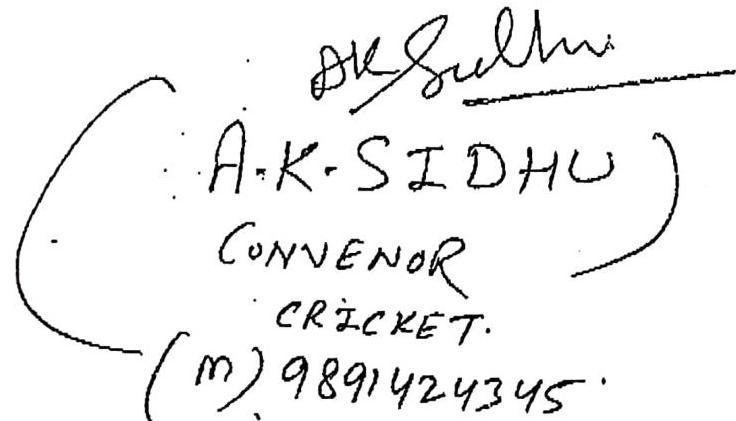 AK Sidhu
A.K. SIDHU
CONVENOR
CRICKET.
(M) 9891424345